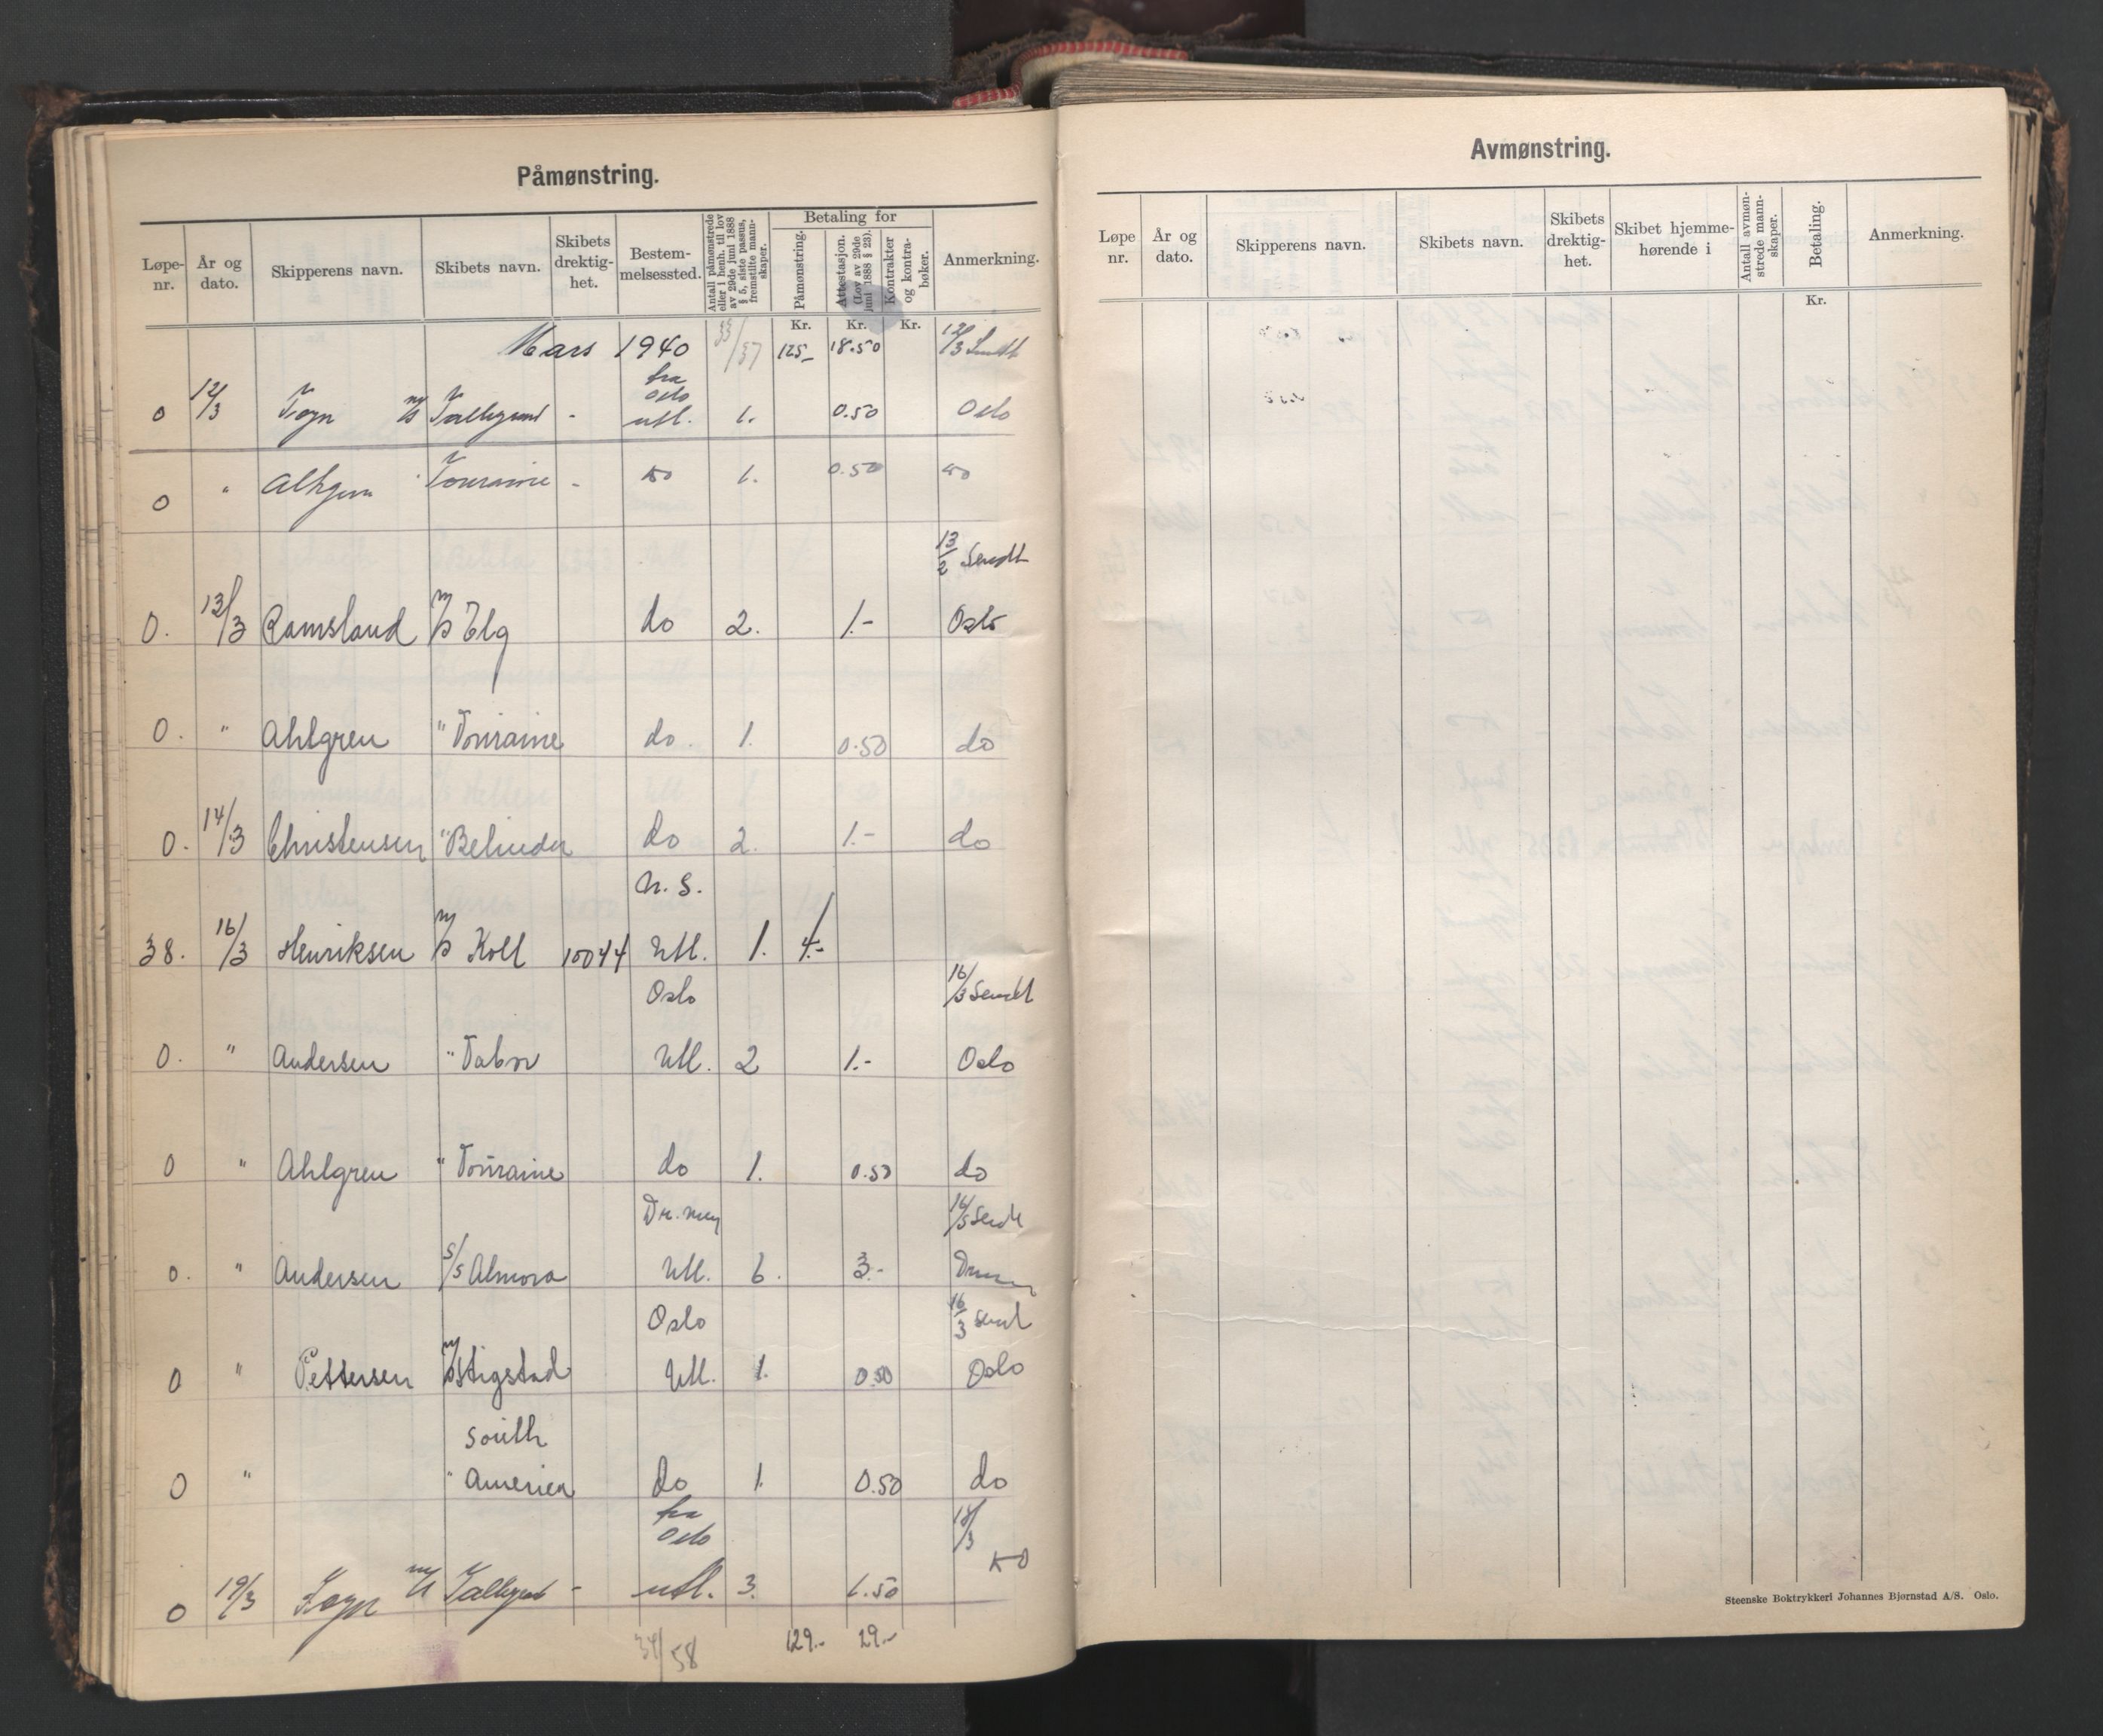 Påmønstring.
Løpe-nr. År og dato. Skipperens navn. Skibets navn. Skibets drektig-het. Bestem-melsessted. Antall påmønstrede eller i henh. til lov av 29de juni 1888 § 5, siste passus, fremstilte mann-skaper. Betaling for Påmønstring. Attestasjon. (Lov av 29de juni 1888 § 23). Kontrakter og kontra-bøker. Anmerkning.
Kr. Kr. Kr.
Mars 1940 33/57 125,- 18.50 12/3 Sendt
fra Oslo
0 12/3 m/s utl. 1. 0.50 Oslo
0 " Touraine - do 1. 0.50 do
13/2 Sendt
0. 13/3 Ramsland m/s Elg do 2. 1.- Oslo
0. " Ahlgren " Touraine do. 1. 0.50 do
0. 14/3 Christensen " Belinda do 2. 1.- do
N. S.
38. 16/3 Henriksen m/s Koll 10044 Utl. 1. 4.-
Oslo 16/3 Sendt
0. " Andersen " Tabor Utl. 2 1.- Oslo
0 " Ahlgren " Touraine do 1. 0.50 do
Dr.men Sendt
0. " Andersen s/s Almora Utl. 6. 3.-
Oslo 16/3 Sendt
0 " Pettersen m/s Stigstad Utl. 1. 0.50 Oslo
South
0 " " America do 1. 0.50 do
fra Oslo 18/3
0 19/3 m/s - utl. 3. 1.50 do
34/58 129.- 29.-
Avmønstring.
Løpe nr. År og dato. Skipperens navn. Skibets navn. Skibets drektig-het. Skibet hjemme-hørende i Antall avmøn-strede mann-skaper. Betaling. Anmerkning.
Kr.
Steenske Boktrykkeri Johannes Bjørnstad A/S. Oslo.